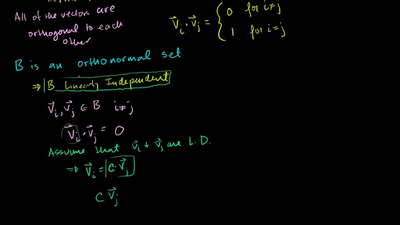 All of the vectors are
orthogonal to each
other
v⃗ᵢ · v⃗ⱼ = { 0 for i≠j
1 for i=j
B is an orthonormal set
⇒ B Linearly Independent
v⃗ᵢ, v⃗ⱼ ∈ B i≠j
v⃗ᵢ · v⃗ⱼ = 0
Assume that v⃗ᵢ + v⃗ⱼ are L.D.
⇒ v⃗ᵢ = c v⃗ⱼ
c v⃗ⱼ